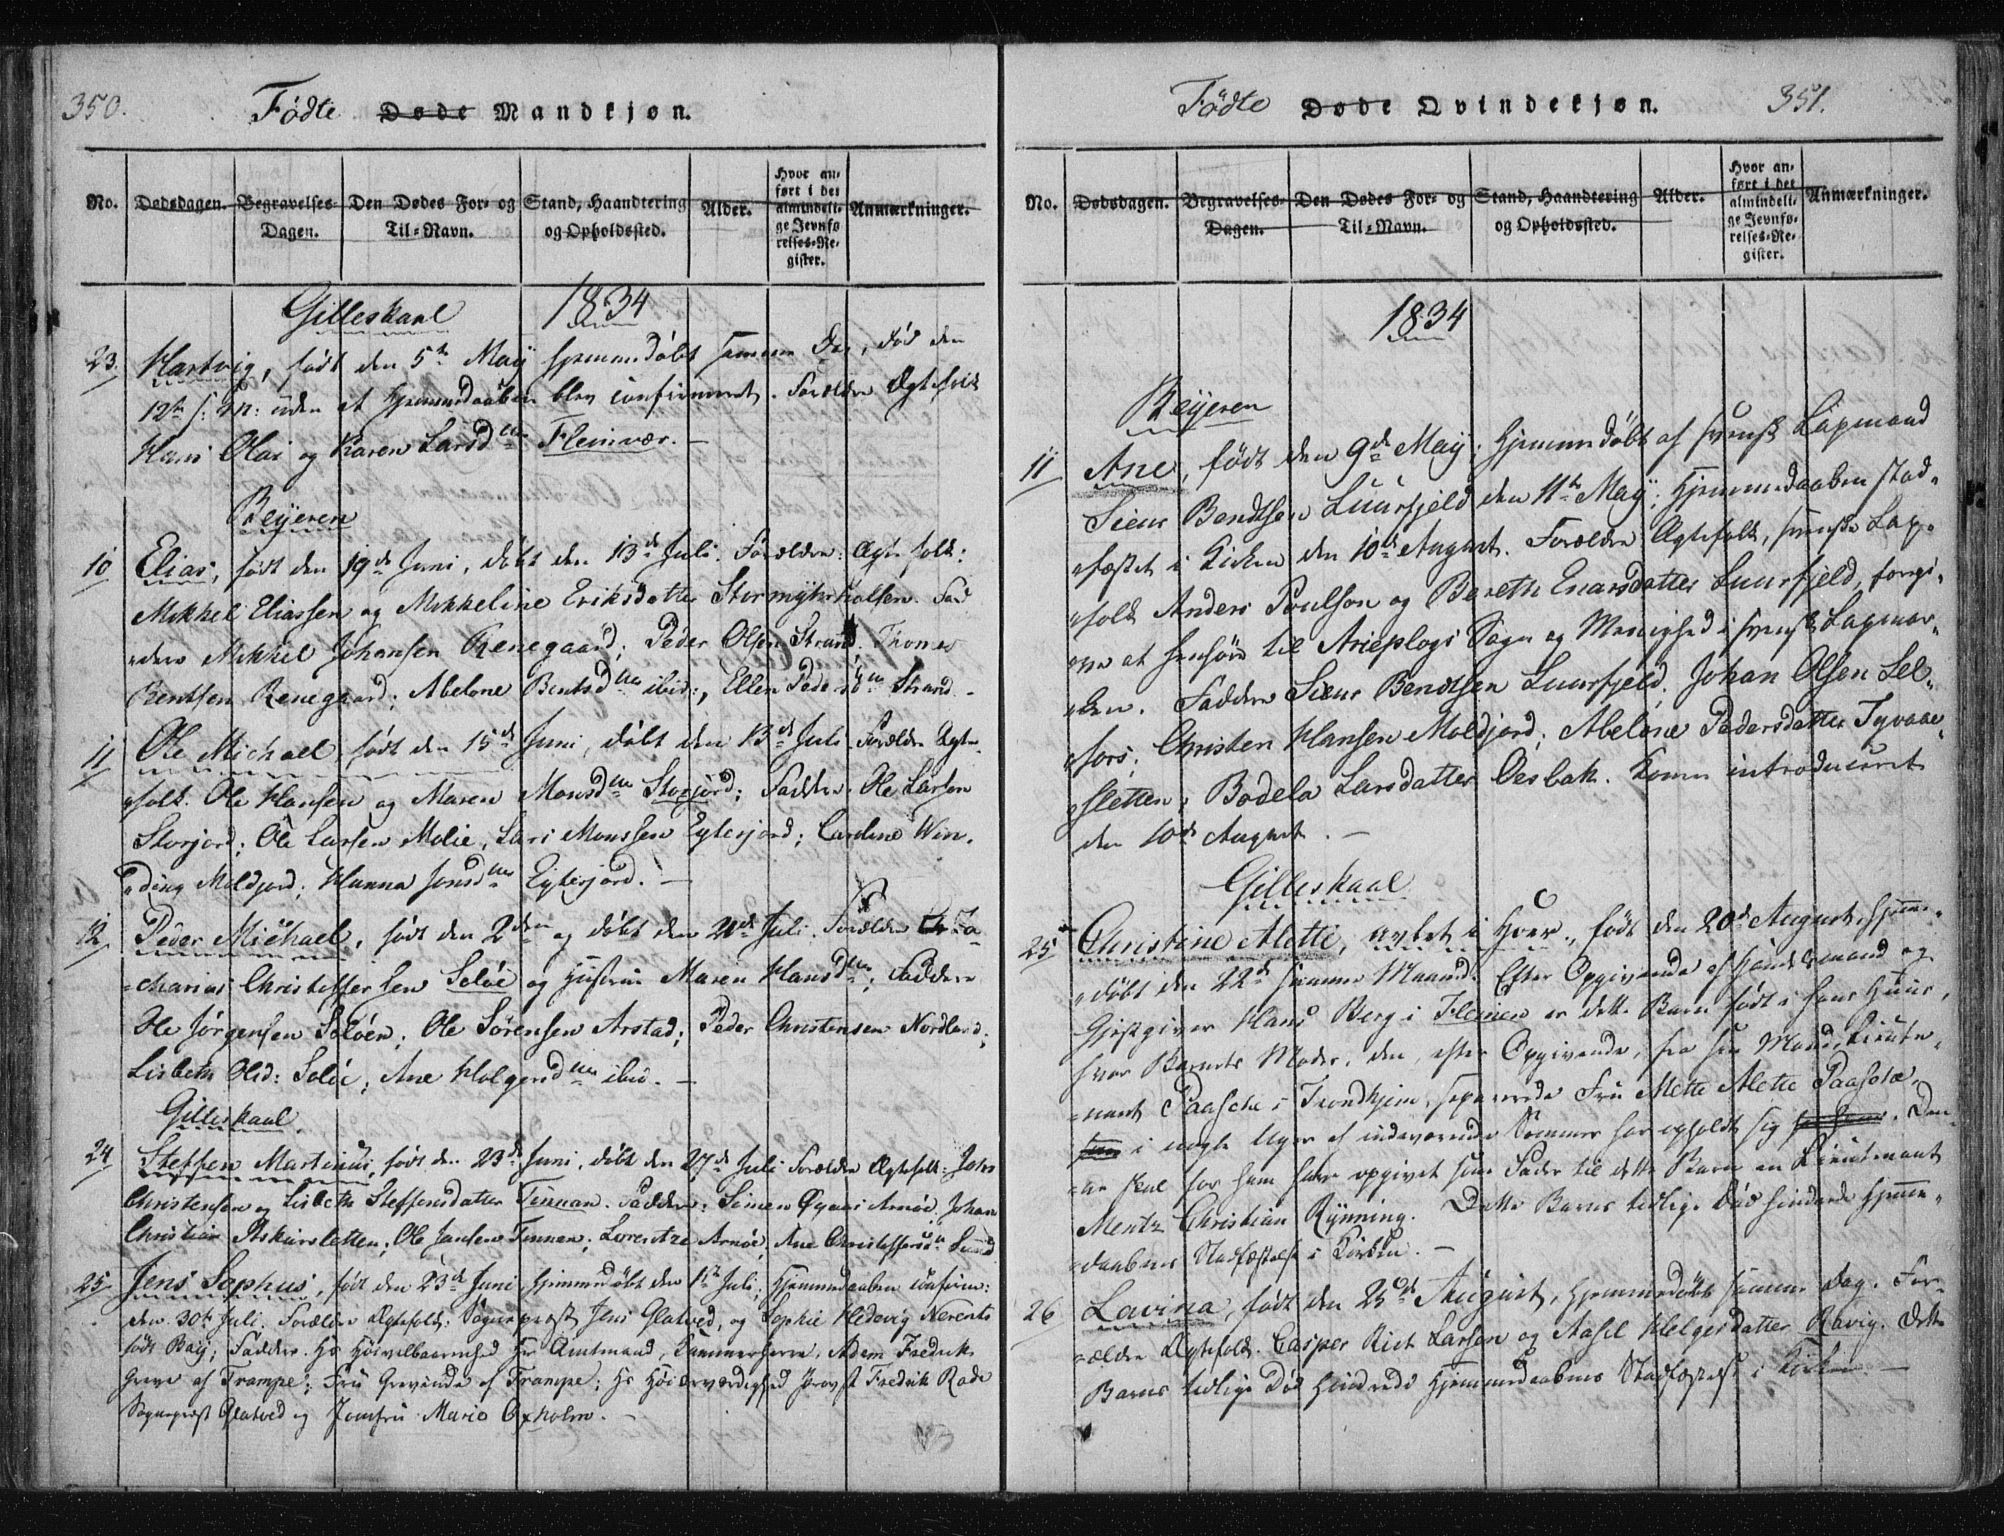 350.
Födte Døde Mandkjøn.
No. Dødsdagen. Begravelses Dagen. Den Dødes For- og Til-Navn. Stand, Haandtering og Opholdssted. Alder. Hvor anført i det almindelige Jevnførelses-Register. Anmærkninger.
Gilleskaal 1834
23. Hartvig, født den 5te Maÿ hjemmedøbt samme Dag, død den
12te s: M: uden at Hjemmedaaben blev confirmeret. Forældre Ægtefolk
Hans Olai og Karen Larsdtter Fleinvær. –
Beÿeren
10 Elias, født den 19de Juni, døbt den 13de Juli. Forældre: Ægtefolk:
Mikkel Eliassen og Mikkeline Eriksdatter Stormÿhrholsen. Fad-
dere Mikkel Johansen Renegaard; Peder Olsen Strand. Thomas
Bentsen Renegaard; Abelone Bentsdtter ibid:, Ellen Pedersdtter Strand. –
11 Ole Michael født den 15de Juni, døbt den 13de Juli. Forældre Ægte-
folk. Ole Hansen og Maren Monsdtter Storjord; Faddere. Ole Larsen
Storjord; Ole Larsen Molie, Lars Monssen Egtesjord; Cardine Win-
ding Moldjord; Hanna Jonsdtter Egtesjord. –
12 Peder Michael, født den 2den og døbt den 20de Juli. Forældre Za-
charias Christoffersen Soløe og Hustrue Maren Hansdtter; Faddere
Ole Jørgensen Soløen; Ole Sørensen Arstad; Peder Christensen Nordland;
Lisbeth Olsd: Soløe; Ane Holgersdtter ibid. –
Gilleskaal.
24 Steffen Martinus, født den 23de Juni, døbt den 27de Juli Forældre Ægtefolk: Johs
Christensen og Lisbeth Steffensdatter Finnan. Faddere: Simen Arnøe, Johan
Christian Askarsletten; Ole Jansen Finnan; Lorentze Arnøe, Ane Christoffersdr Sund
25 Jens Sophus, født den 23de Juni, hjemmedøbt den 1te Juli; Hjemmedaaben confirm:
den 30te Juli. Forældre Ægtefolk: Sognepræst Jens Glatved, og Sophie Hedevig Nerents
født Baÿ; Faddere. Hs Høivelbaarenhed Hr Amtmand, Kammerherre, Adam Fredrik
Greve af Trampe; Fru Grevinde af Trampe; Hs Høiærværdighed Provst Fredrik Rode
Sognepræst Glatved og Jomfru Marie Oxholm. –
Födte Døde Qvindekjøn. 351.
No. Dødsdagen. Begravelses-Dagen. Den Dødes For- og Til-Navn. Stand, Haandtering og Opholdssted. Alder. Hvor anført i det almindelige Jevnførelses-Register. Anmærkninger.
1834
Beÿeren
11 Ane, født den 9de Maÿ; hjemmedøbt af svensk Lapmand
Sieur Bendtsen Luurfjeld den 11te Maÿ; Hjemmedaaben stad-
fæstet i Kirken den 10de August. Forældre Ægtefolk, svenske Lap-
folk Anders Poulsen og Bereth Enarsdatter Luurfjeld, foregi-
ve at henhøre til Arieplogs Sogn og Menighed i svensk Lapmar-
ken. Faddere Sieur Bendtsen Luurfjeld, Johan Olsen Sel-
fors; Christen Hansen Moldjord; Abelone Pedersdatter Tyvaae-
sletten; Bodela Larsdatter Oesbak. Konen introduceret
den 10de August. –
Gilleskaal
25 Christine Alette, avlet i Hoer., født den 20de August, hjemme-
døbt den 22de samme Maaned. Efter Opgivende af Handelsmand og
Gjestgiver Hans Berg i Fleinen er dette Barn født i hans Huus,
hvor Barnets Moder, den, efter Opgivende, fra sin Mand, Lieute-
nant Paasche i Trondhjem, separerede Fru Mette Alette Paasche,
i nogle Uger af indeværende Sommer har opholdt sig. Den-
ne skal for ham have opgivet som Fader til dette Barn en Lieutenant
Mentz Christian Rÿnning. Dette Barns tidlige Død hindrede Hjemme-
daabens Stadfæstelse i Kirken. –
26 Lavina, født den 25de August, hjemmedøbt samme Dag. For-
ældre Ægtefolk. Casper Rist Larsen og Aasel Helgesdatter Ravig. Dette
Barns tidlige Død hindrede Hjemmedaabens Stadfæstelse i Kirken. –